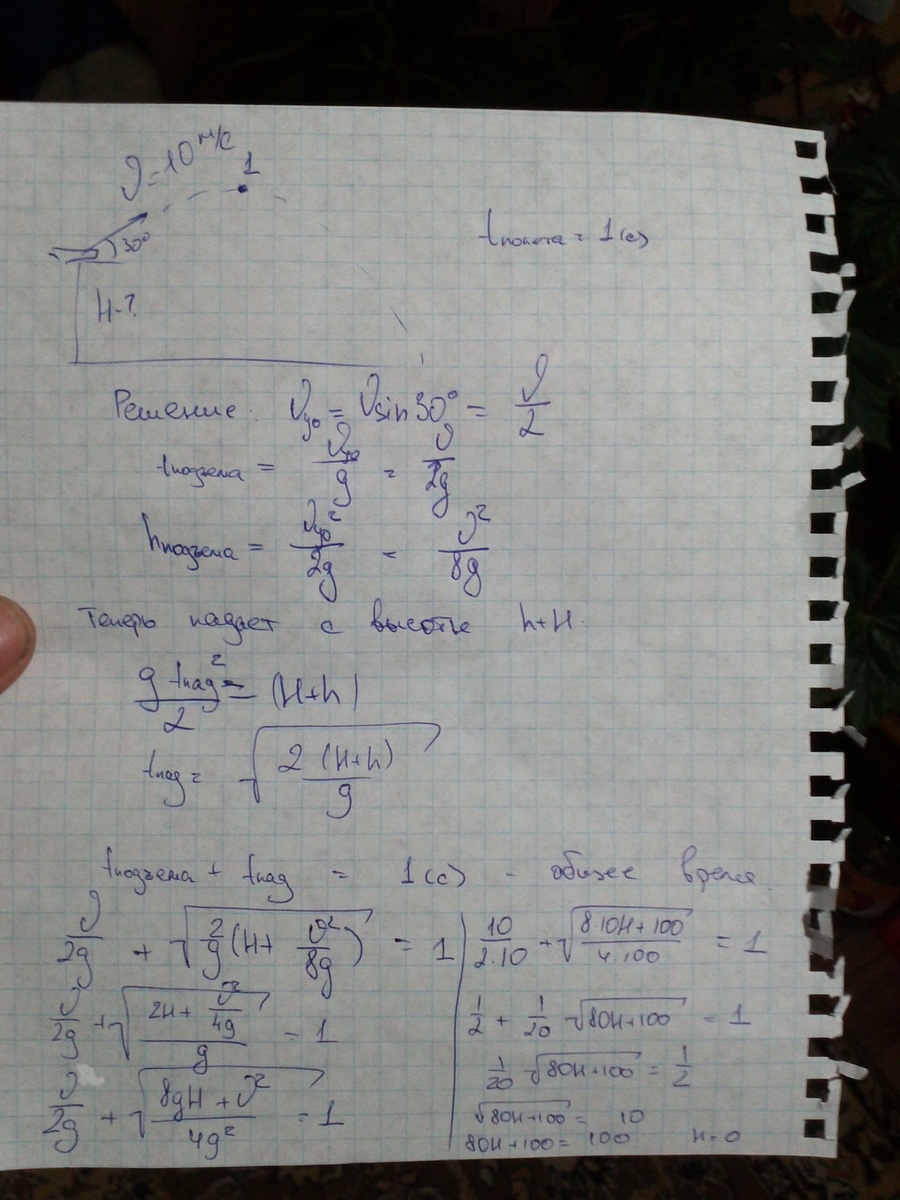 υ=10 м/с
1
30°
tполета = 1(с)
H-?
Решение: υy0 = υsin30° = υ/2
tподъема = υy0/g = υ/2g
hподъема = υy0²/2g = υ²/8g
Теперь падает с высоты h+H.
g tпад²/2 = (H+h)
tпад = √(2(H+h)/g)
tподъема + tпад = 1(с) - общее время.
υ/2g + √(2/g(H+υ²/8g)) = 1
υ/2g + √((2H+υ²/4g)/g) = 1
υ/2g + √((8gH+υ²)/4g²) = 1
10/2·10 + √((8·10H+100)/4·100) = 1
1/2 + 1/20 √(80H+100) = 1
1/20 √(80H+100) = 1/2
√(80H+100) = 10
80H+100 = 100 H=0